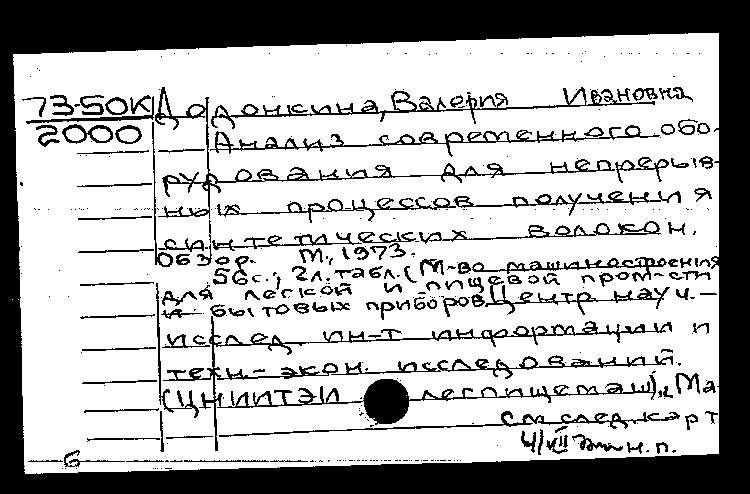 73-50К Додонкина, Валерия Ивановна
2000
Анализ современного обо-
рудования для непрерыв-
ных процессов получения
синтетических волокон.
Обзор. М., 1973.
56с.; 2л. табл. (М-во машиностроения
для легкой и пищевой пром-сти
и бытовых приборов. Центр. науч.-
исслед. ин-т информации и
техн.-экон. исследований.
(ЦНИИТЭИ легпищемаш). "Ма
см след. карт
4/VII н.п.
6